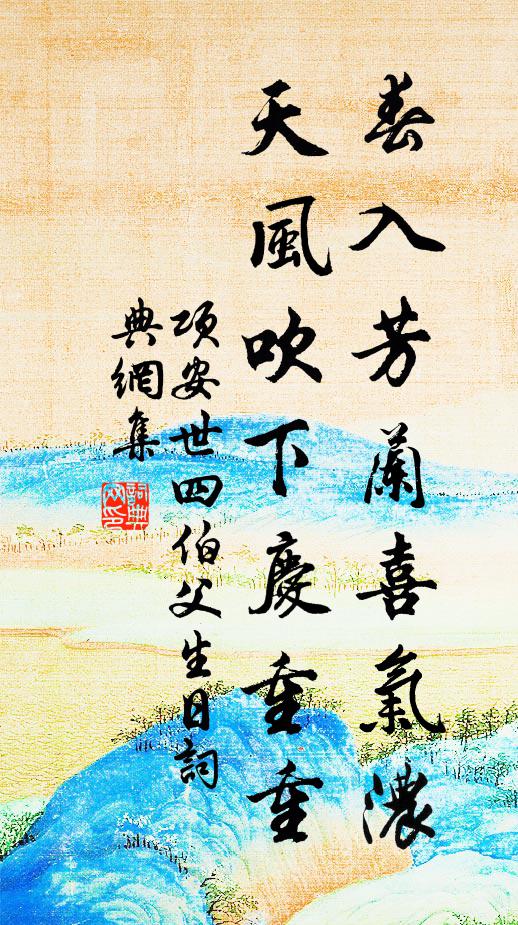 春入芳蘭喜氣濃
天風吹下慶重重
項安世四伯父生日詞
典網集
詞典
网印